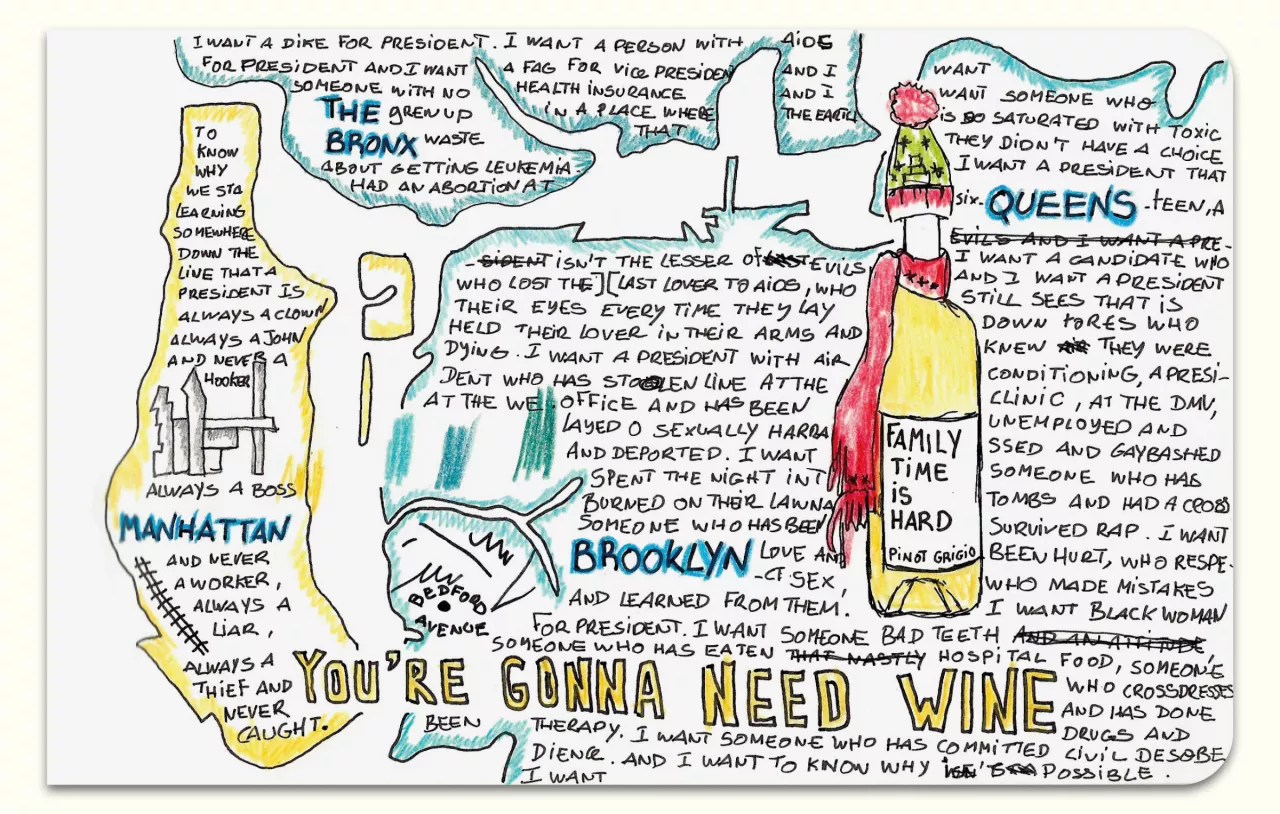 I WANT A DIKE FOR PRESIDENT. I WANT A PERSON WITH AIDS
FOR PRESIDENT AND I WANT A FAG FOR VICE PRESIDENT AND I
SOMEONE WITH NO HEALTH INSURANCE AND I
THE GREW UP IN A PLACE WHERE THE EARTH
BRONX WASTE THAT
ABOUT GETTING LEUKEMIA.
HAD AN ABORTION AT
WANT
WANT SOMEONE WHO
IS SO SATURATED WITH TOXIC
THEY DIDN'T HAVE A CHOICE
I WANT A PRESIDENT THAT
SIX- QUEENS -TEEN, A
EVILS AND I WANT A PRE-
I WANT A CANDIDATE WHO
AND I WANT A PRESIDENT
STILL SEES THAT IS
DOWN tORES WHO
KNEW THEY WERE
CONDITIONING, A PRESI-
CLINIC, AT THE DMV,
UNEMPLOYED AND
SSED AND GAYBASHED
SOMEONE WHO HAS
TOMBS AND HAD A CROSS
SURVIVED RAP. I WANT
BEEN HURT, WHO RESPE-
WHO MADE MISTAKES
I WANT BLACK WOMAN
TO
KNOW
WHY
WE STA
LEARNING
SOMEWHERE
DOWN THE
LINE THAT A
PRESIDENT IS
ALWAYS A CLOWN
ALWAYS A JOHN
AND NEVER A
HOOKER
ALWAYS A BOSS
MANHATTAN
AND NEVER
A WORKER,
ALWAYS A
LIAR,
ALWAYS A
THIEF AND
NEVER
CAUGHT.
-SIDENT ISN'T THE LESSER OF LAST EVILS
WHO LOST THE][LAST LOVER TO AIDS, WHO
THEIR EYES EVERY TIME THEY LAY
HELD THEIR LOVER IN THEIR ARMS AND
DYING. I WANT A PRESIDENT WITH AIR
DENT WHO HAS STOOLEN LINE AT THE
AT THE WE OFFICE AND HAS BEEN
LAYED O SEXUALLY HARRA
AND DEPORTED. I WANT
SPENT THE NIGHT INT
BURNED ON THEIR LAWNA
SOMEONE WHO HAS BEEN
BROOKLYN LOVE AND
-CT SEX,
AND LEARNED FROM THEM.
BEDFORD
AVENUE
FAMILY
TIME
IS
HARD
PINOT GRIGIO
FOR PRESIDENT. I WANT SOMEONE BAD TEETH AND AN ATTITUDE,
SOMEONE WHO HAS EATEN THAT NASTLY HOSPITAL FOOD, SOMEONE
YOU'RE GONNA NEED WINE
WHO CROSSDRESSES
AND HAS DONE
DRUGS AND
BEEN THERAPY. I WANT SOMEONE WHO HAS COMMITTED CIVIL DESOBE
DIENCE. AND I WANT TO KNOW WHY POSSIBLE.
I WANT